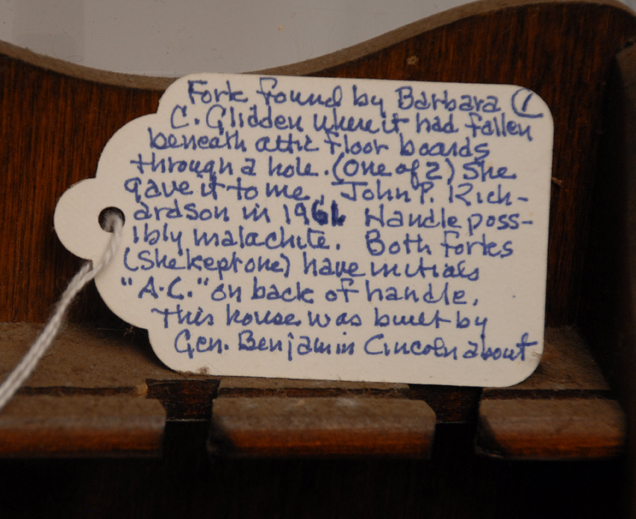 Fork found by Barbara (1
C. Glidden where it had fallen
beneath attic floor boards
through a hole. (One of 2) She
gave it to me, John P. Rich-
ardson in 1961. Handle poss-
ibly malachite. Both forks
(She kept one) have initials
"A.C." on back of handle.
This house was built by
Gen. Benjamin Lincoln about